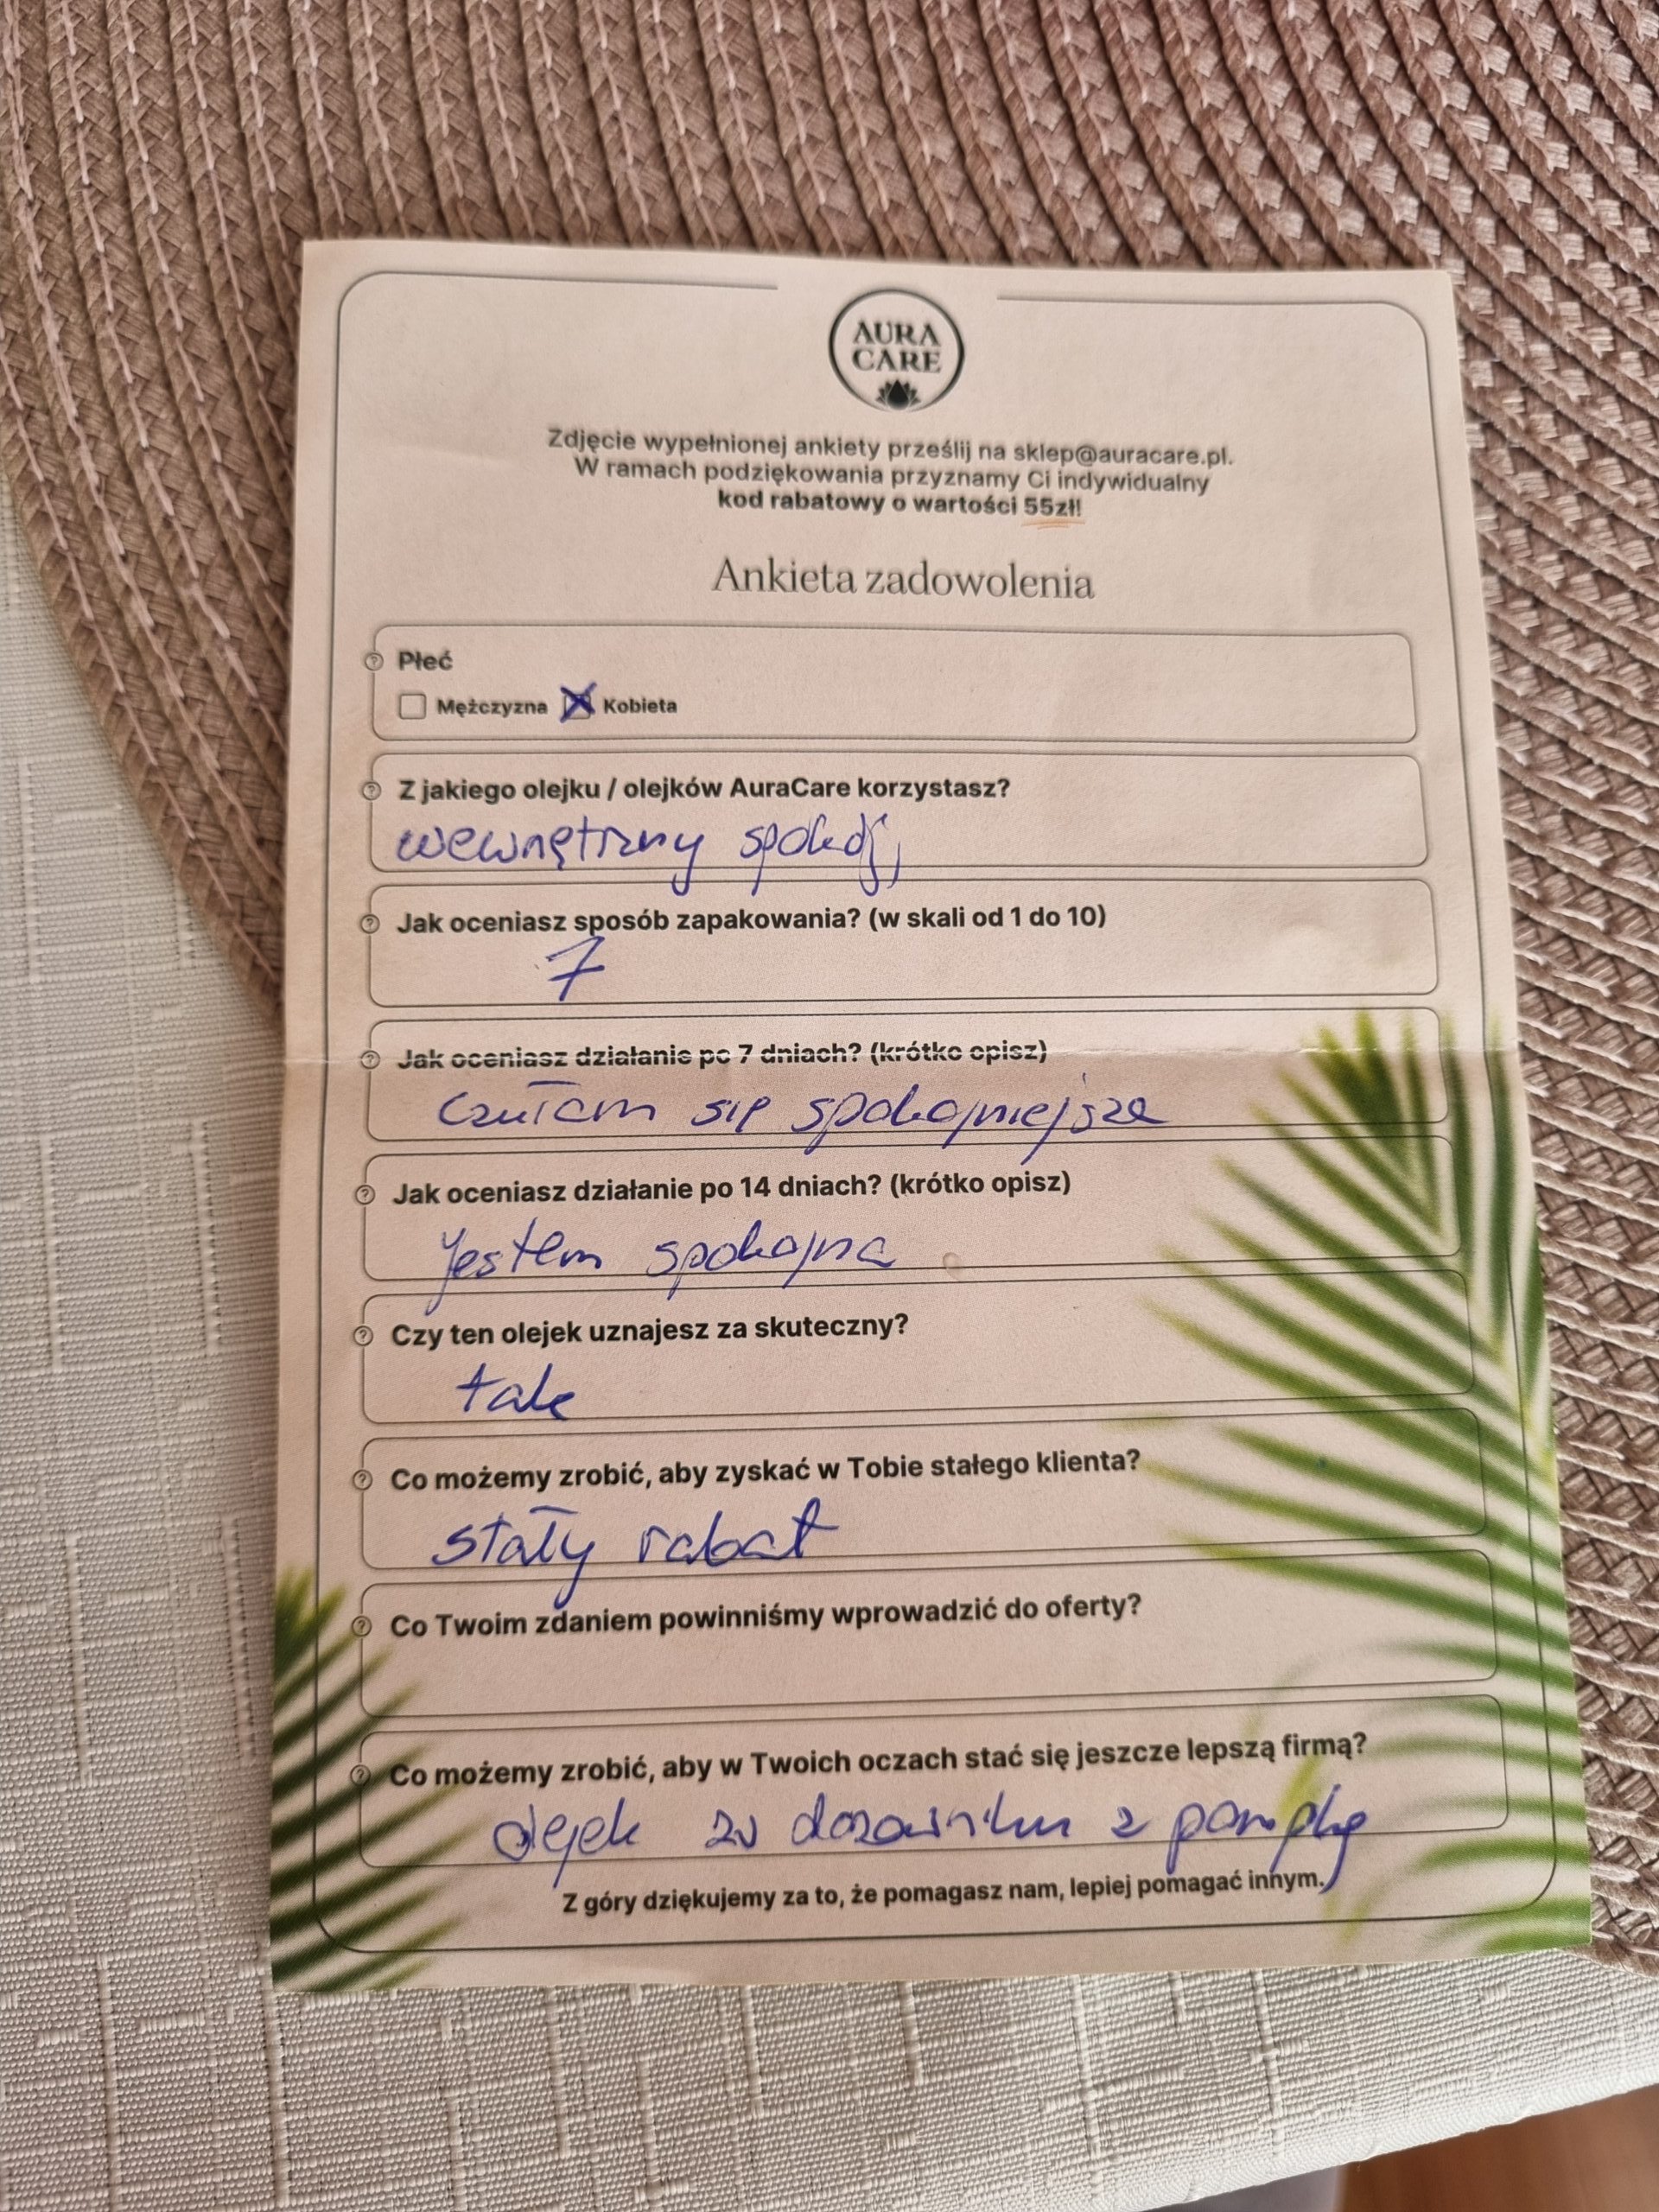 AURA
CARE
Zdjęcie wypełnionej ankiety prześlij na sklep@auracare.pl.
W ramach podziękowania przyznamy Ci indywidualny
kod rabatowy o wartości 55zł!
Ankieta zadowolenia
Płeć
Mężczyzna Kobieta
Z jakiego olejku / olejków AuraCare korzystasz?
wewnętrzny spokój
Jak oceniasz sposób zapakowania? (w skali od 1 do 10)
7
Jak oceniasz działanie po 7 dniach? (krótko opisz)
czułam się spokojniejsza
Jak oceniasz działanie po 14 dniach? (krótko opisz)
Jestem spokojna
Czy ten olejek uznajesz za skuteczny?
tak
Co możemy zrobić, aby zyskać w Tobie stałego klienta?
stały rabat
Co Twoim zdaniem powinniśmy wprowadzić do oferty?
Co możemy zrobić, aby w Twoich oczach stać się jeszcze lepszą firmą?
olejek w dozowniku z pompką
Z góry dziękujemy za to, że pomagasz nam, lepiej pomagać innym.